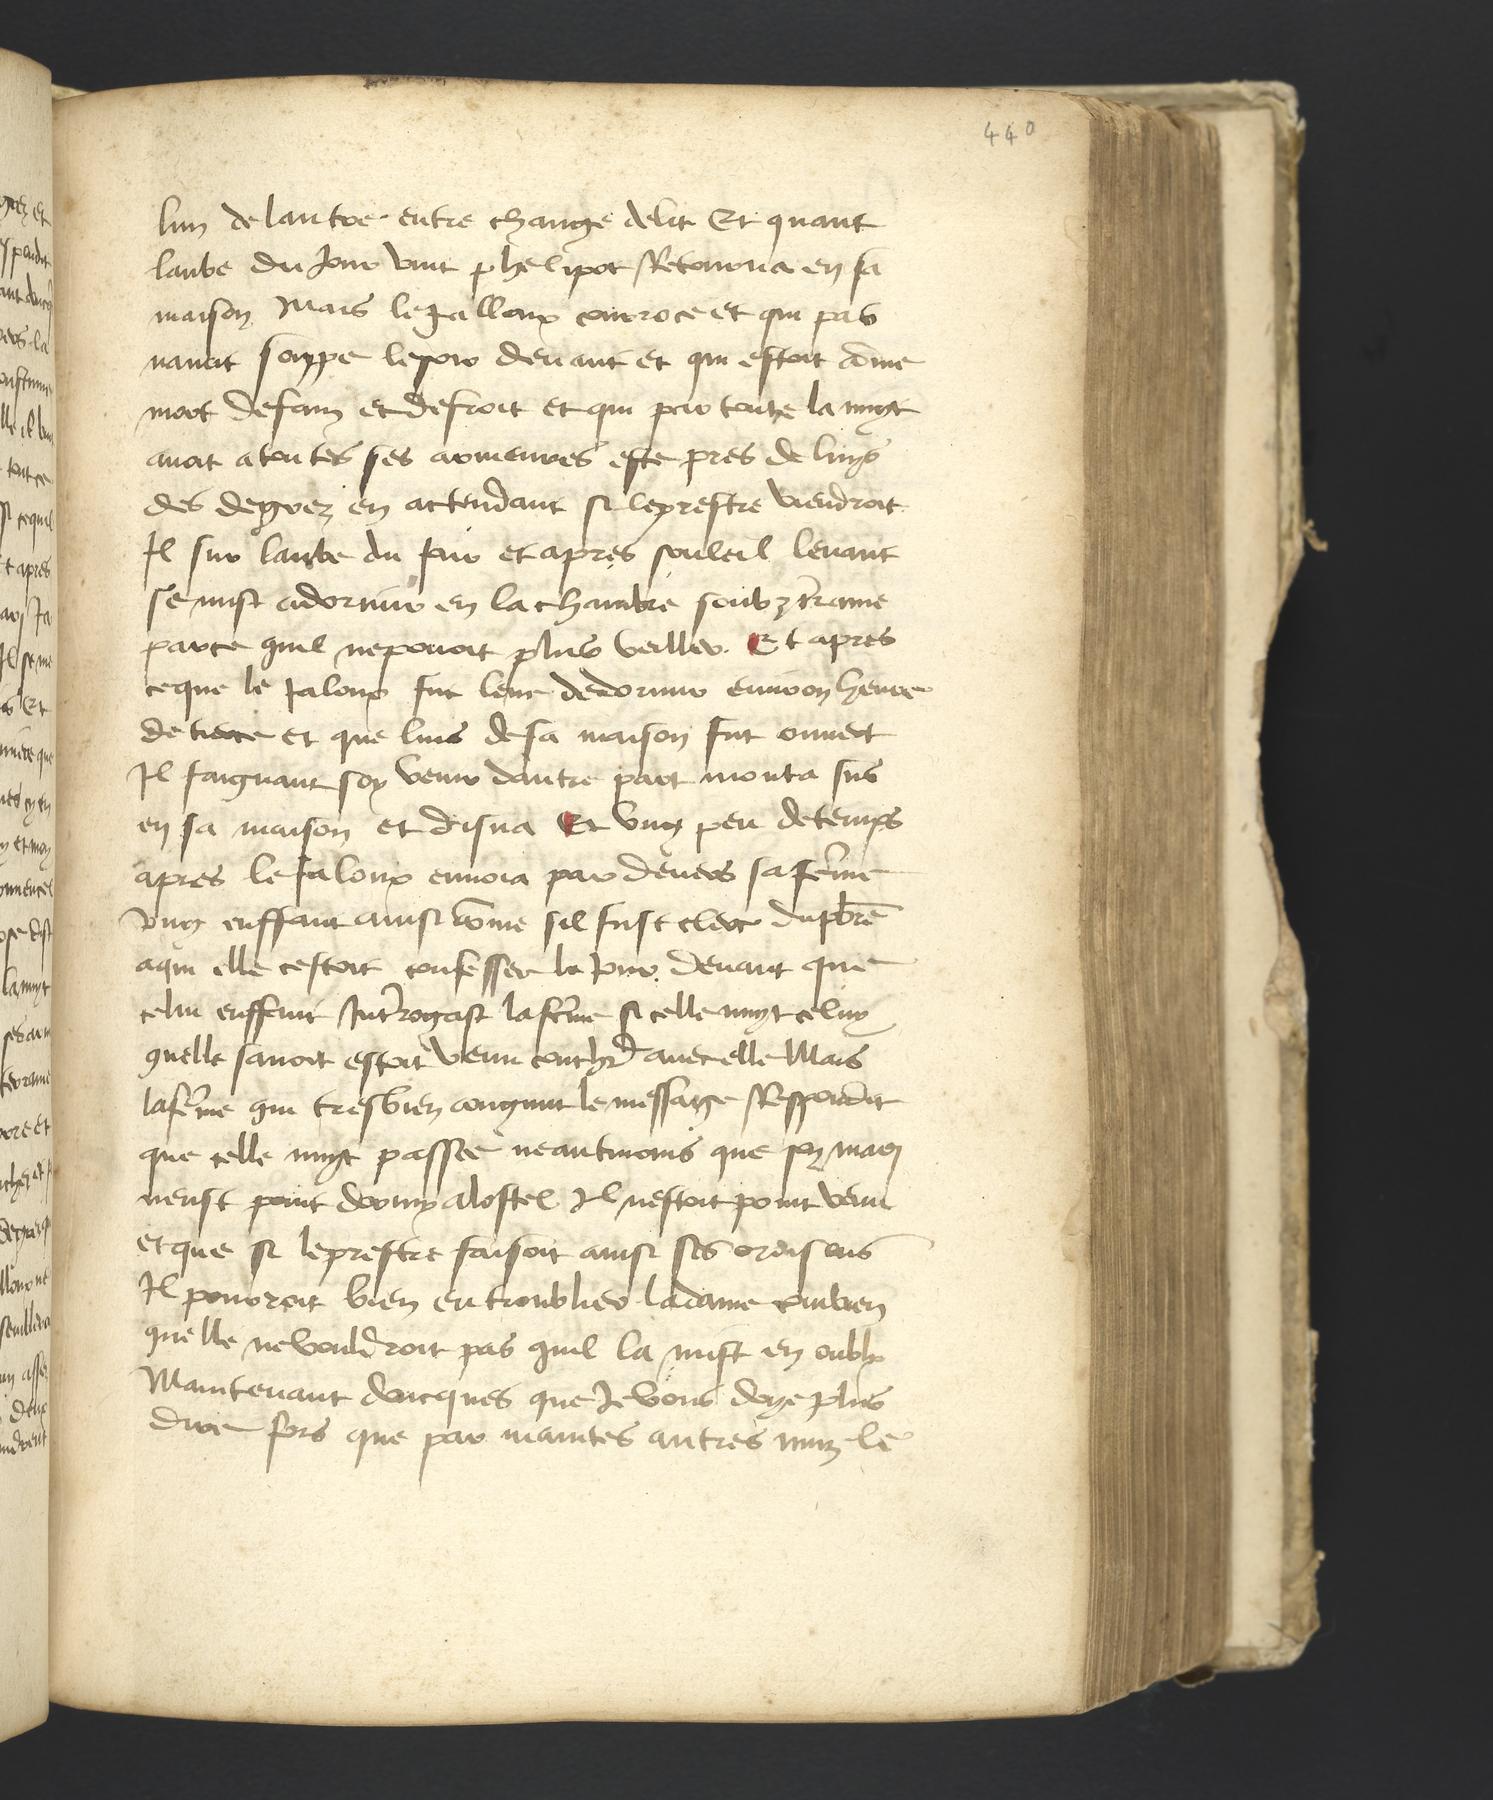 440
lun de lautre entre change delit Et quant
laube du Jour vint phelipot Retourna en sa
maison Mais le Jalloux courroce et qui pas
nauoit souppe lesoir deuant et qui estoit cõme
mort defain et defroit et qui par toute la nuyt
auoit atoutes ses armeures este pres de luys
des degrez en actendant si leprestre viendroit
Il sur laube du Jour et apres souleil leuant
se mist adormir en la chambre soubzterraine
parce quil nepouoit plus veiller. Et apres
ceque le Jaloux fut leue dedormir enuiron heure
de tierce et que luis desa maison fut ouuert
Il faignant soy venir dautre part monta sus
en sa maison et disna Et vng peu detemps
apres le Jaloux enuoia par deuers sa fẽme
vng enffant ainsi cõme sil fust clerc dupbrẽ
aqui elle cestoit confesser le Jour deuant que
celui enffant Interrogast lafẽme si celle nuyt celuy
quelle sauoit estoit venu couchr auec elle Mais
lafẽme qui tresbien congnut le messaige Respondit
que celle nuyt passee neantmoins que son mary
neust point dormy alostel Il nestoit point venu
et que si leprestre faisoit ainsi ses
Il pourroit bien entroublier ladame combien
quelle nevouldroit pas quil la mist en oubly
Maintenant doncques que Je vous doye plus
dire fors que par maintes autres nuiz le